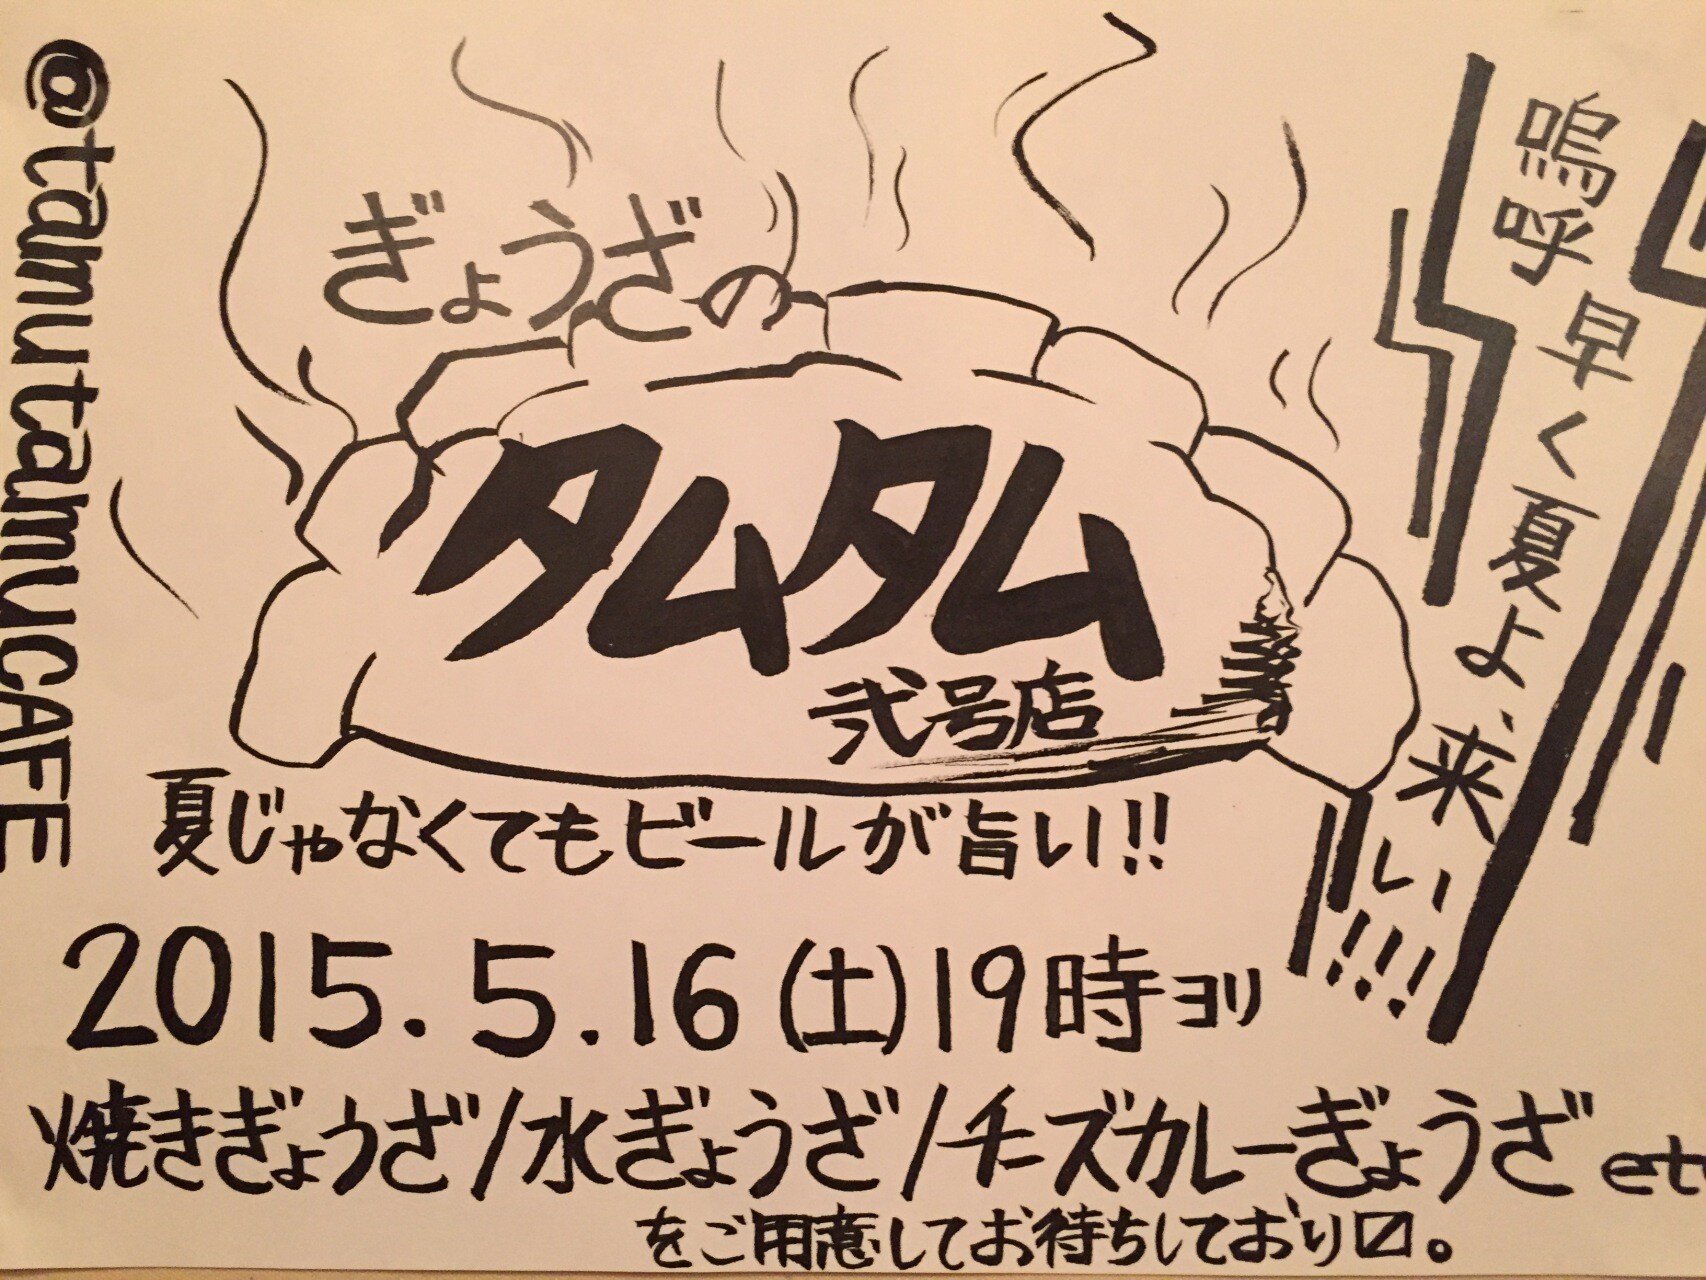 @tamutamuCAFE
ぎょうざの
タムタム
弐号店
嗚呼早く夏よ、来い!!!
夏じゃなくてもビールが旨い!!
2015.5.16(土)19時ヨリ
焼きぎょうざ/水ぎょうざ/チーズカレーぎょうざ etc
をご用意してお待ちしております。